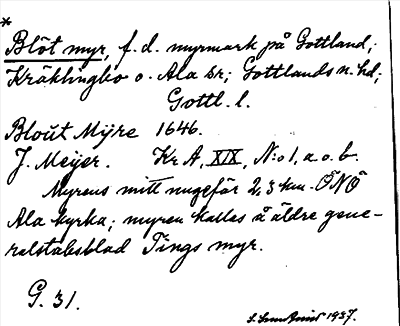 *
Blöt myr, f.d. myrmark på Gottland;
Kräklingbo o. Ala sr; Gottlands n. hd;
Gottl. l.
Bloůt Mÿre 1646.
J. Meÿer. Kr A, XIX, N:o 1, a. o. b.
Myrens mitt ungefär 2,3 km. ÖNÖ
Ala kyrka; myren kallas å äldre gene-
ralstabsblad Tings myr.
G. 31.
1937.